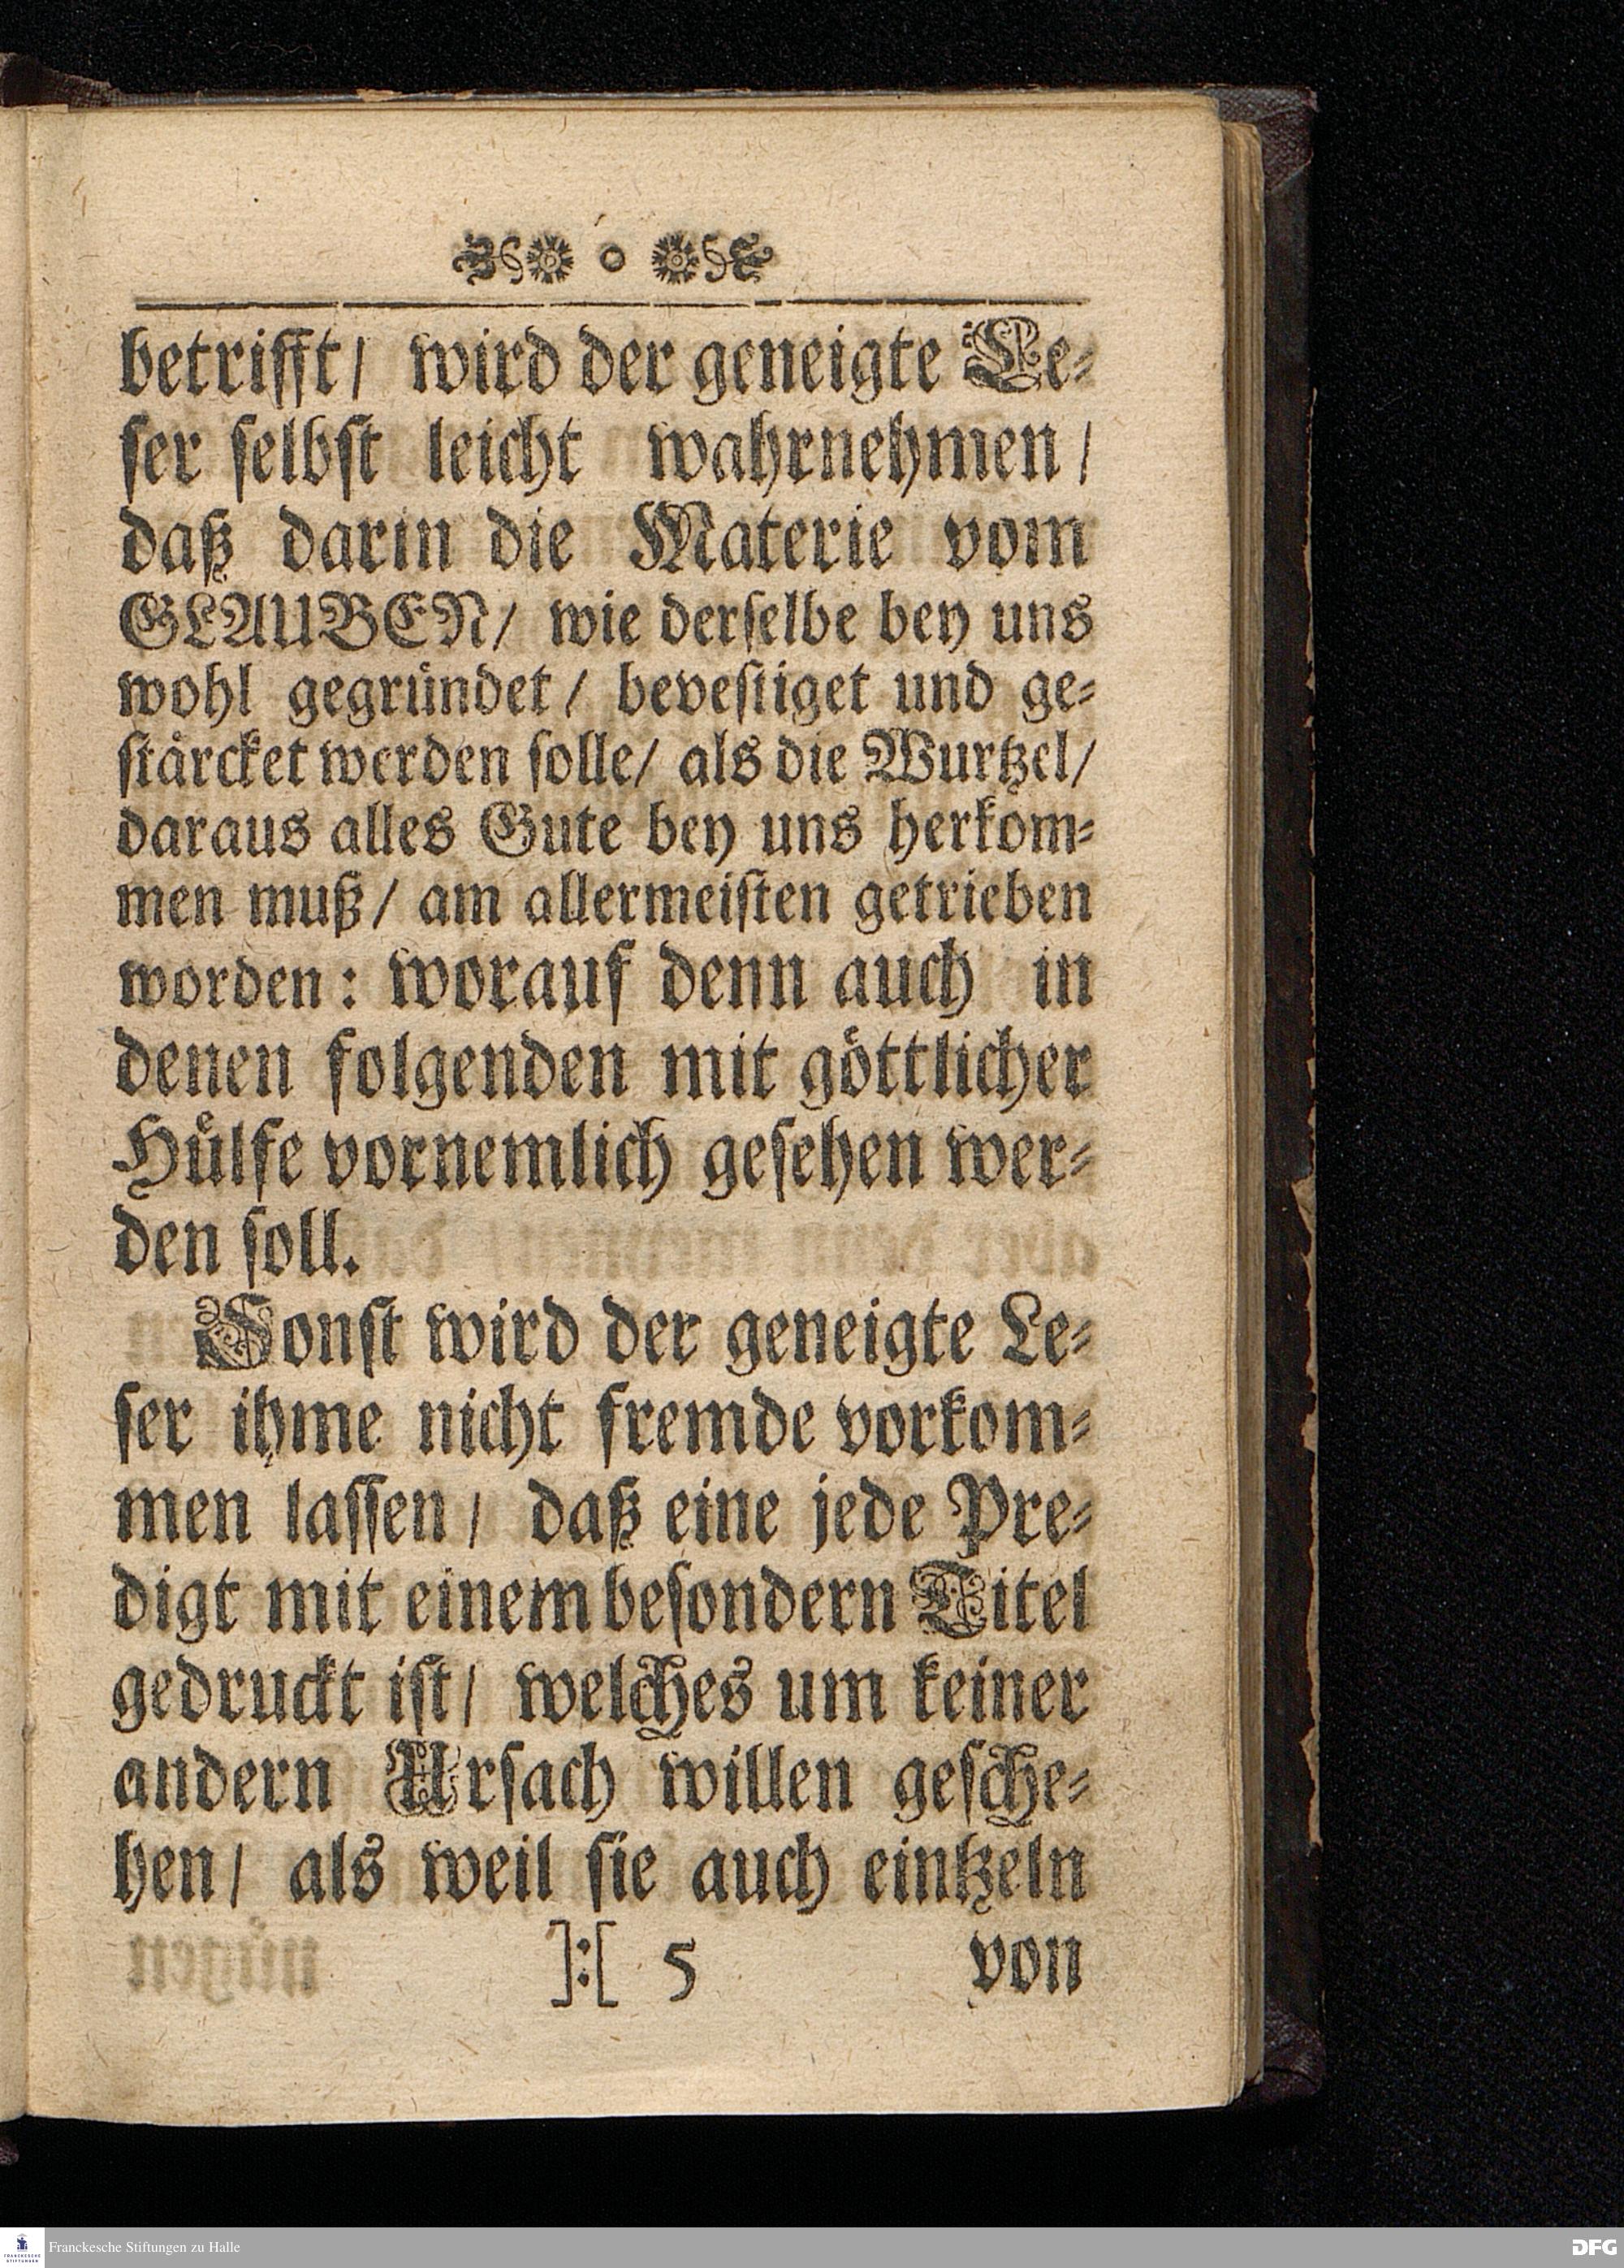 betrifft/ wird der geneigte Le-
ser selbst leicht wahrnehmen/
daß darin die Materie vom
GLAUBEN/ wie derselbe bey uns
wohl gegründet/ bevestiget und ge-
stärcket werden solle/ als die Wurtzel/
daraus alles Gute bey uns herkom-
men muß/ am allermeisten getrieben
worden: worauf denn auch in
denen folgenden mit göttlicher
Hülfe vornemlich gesehen wer-
den soll.
Sonst wird der geneigte Le-
ser ihme nicht fremde vorkom-
men lassen/ daß eine jede Pre-
digt mit einem besondern Titel
gedruckt ist/ welches um keiner
andern Ursach willen gesche-
hen/ als weil sie auch eintzeln
]:[ 5 von
FRANCKESCHE STIFTUNGEN
Franckesche Stiftungen zu Halle
DFG